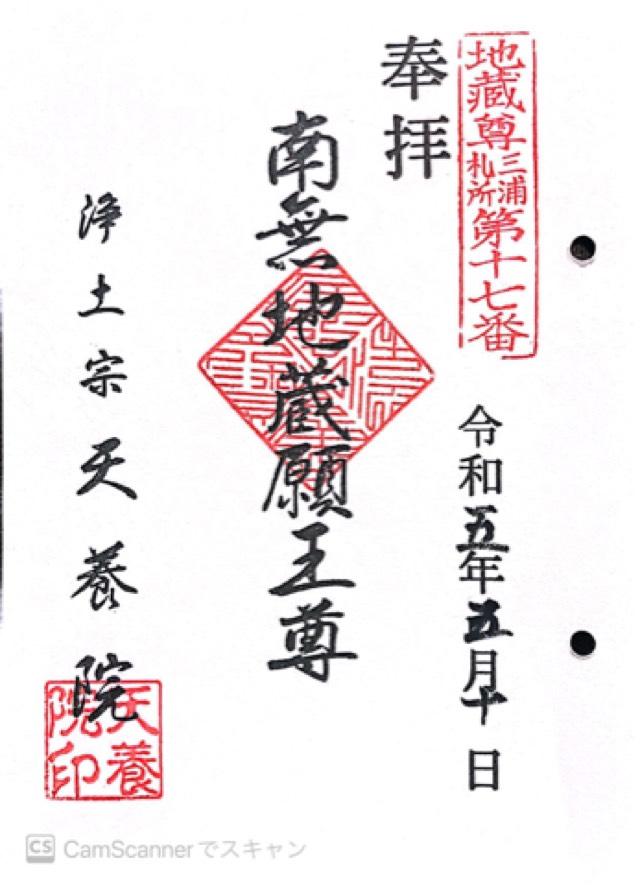 地蔵尊三浦札所第十七番
奉拝
令和五年五月十日
南無地蔵願王尊
浄土宗天養院
天養院印
CS CamScannerでスキャン